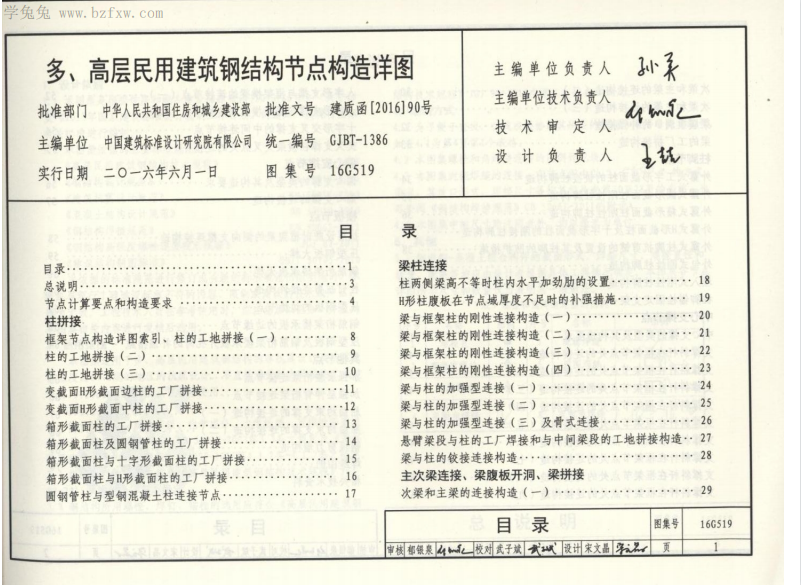 学兔兔 www.bzfxw.com
多、高层民用建筑钢结构节点构造详图
批准部门 中华人民共和国住房和城乡建设部 批准文号 建质函[2016]90号
主编单位 中国建筑标准设计研究院有限公司 统一编号 GJBT-1386
实行日期 二〇一六年六月一日 图集号 16G519
主编单位负责人
主编单位技术负责人
技术审定人
设计负责人
目 录
目录 1
总说明 3
节点计算要点和构造要求 4
柱拼接
框架节点构造详图索引、柱的工地拼接(一) 8
柱的工地拼接(二) 9
柱的工地拼接(三) 10
变截面H形截面边柱的工厂拼接 11
变截面H形截面中柱的工厂拼接 12
箱形截面柱的工厂拼接 13
箱形截面柱及圆钢管柱的工厂拼接 14
箱形截面柱与十字形截面柱的工厂拼接 15
箱形截面柱与H形截面柱的工厂拼接 16
圆钢管柱与型钢混凝土柱连接节点 17
梁柱连接
柱两侧梁高不等时柱内水平加劲肋的设置 18
H形柱腹板在节点域厚度不足时的补强措施 19
梁与框架柱的刚性连接构造(一) 20
梁与框架柱的刚性连接构造(二) 21
梁与框架柱的刚性连接构造(三) 22
梁与框架柱的刚性连接构造(四) 23
梁与柱的加强型连接(一) 24
梁与柱的加强型连接(二) 25
梁与柱的加强型连接(三)及骨式连接 26
悬臂梁段与柱的工厂焊接和与中间梁段的工地拼接构造 27
梁与柱的铰接连接构造 28
主次梁连接、梁腹板开洞、梁拼接
次梁和主梁的连接构造(一) 29
目 录 图集号 16G519
审核 郁银泉 校对 武子斌 设计 宋文晶 页 1